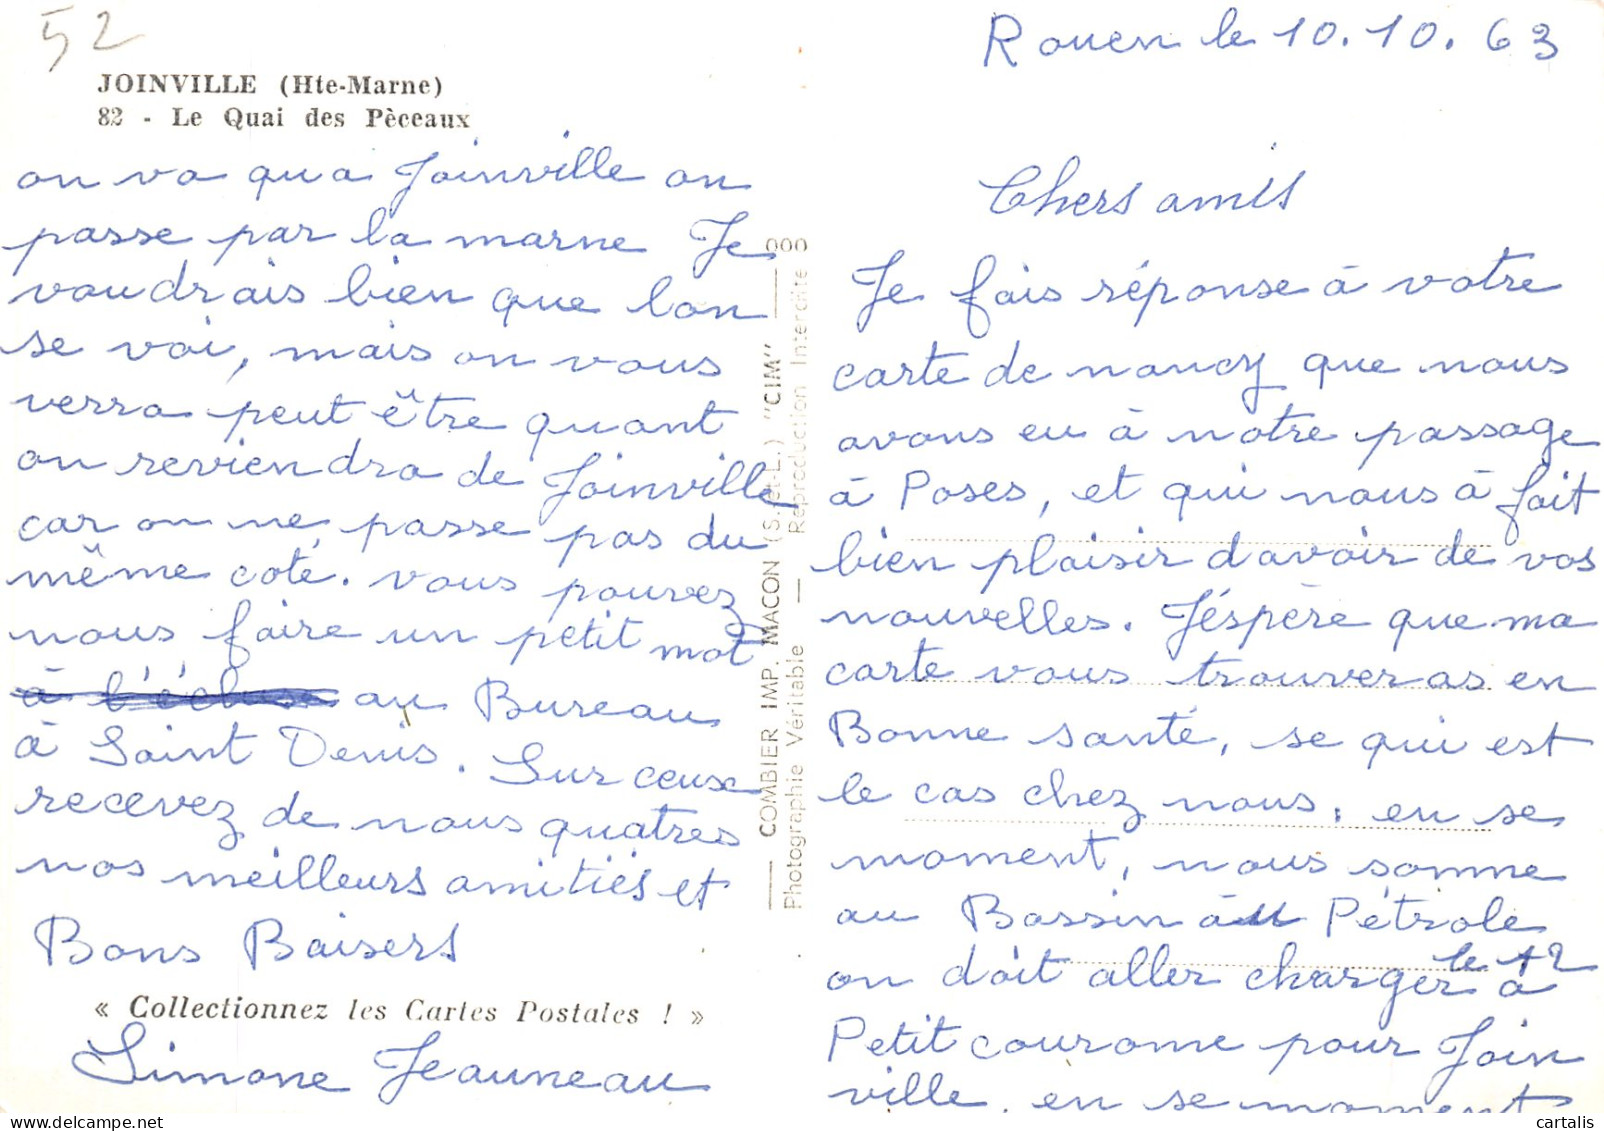 52
JOINVILLE (Hte-Marne)
82 - Le Quai des Pèceaux
Rouen le 10.10.63
Chers amis
Je fais réponse à votre
carte de nancy que nous
avons eu à notre passage
à Poses, et qui nous à fait
bien plaisir d'avoir de vos
nouvelles. J'éspère que ma
carte vous trouveras en
Bonne santé, se qui est
le cas chez nous; en se
moment, nous somme
au Bassin au Pétrole
on doit aller charger le 12 à
Petit couronne pour Join
ville. en se moment
on va qu a Joinville on
passe par la marne Je
voudrais bien que lon
se voi, mais on vous
verra peut être quant
on reviendra de Joinville
car on ne passe pas du
même coté. vous pouvez
nous faire un petit mot
à l'écluse au Bureau
à Saint Denis. Sur ceux
recevez de nous quatres
nos meilleurs amitiés et
Bons Baisers
« Collectionnez les Cartes Postales ! »
Simone Jeauneau
COMBIER IMP. MACON (S.-et-L.) "CIM"
Photographie Véritable — Reproduction Interdite
cartalis